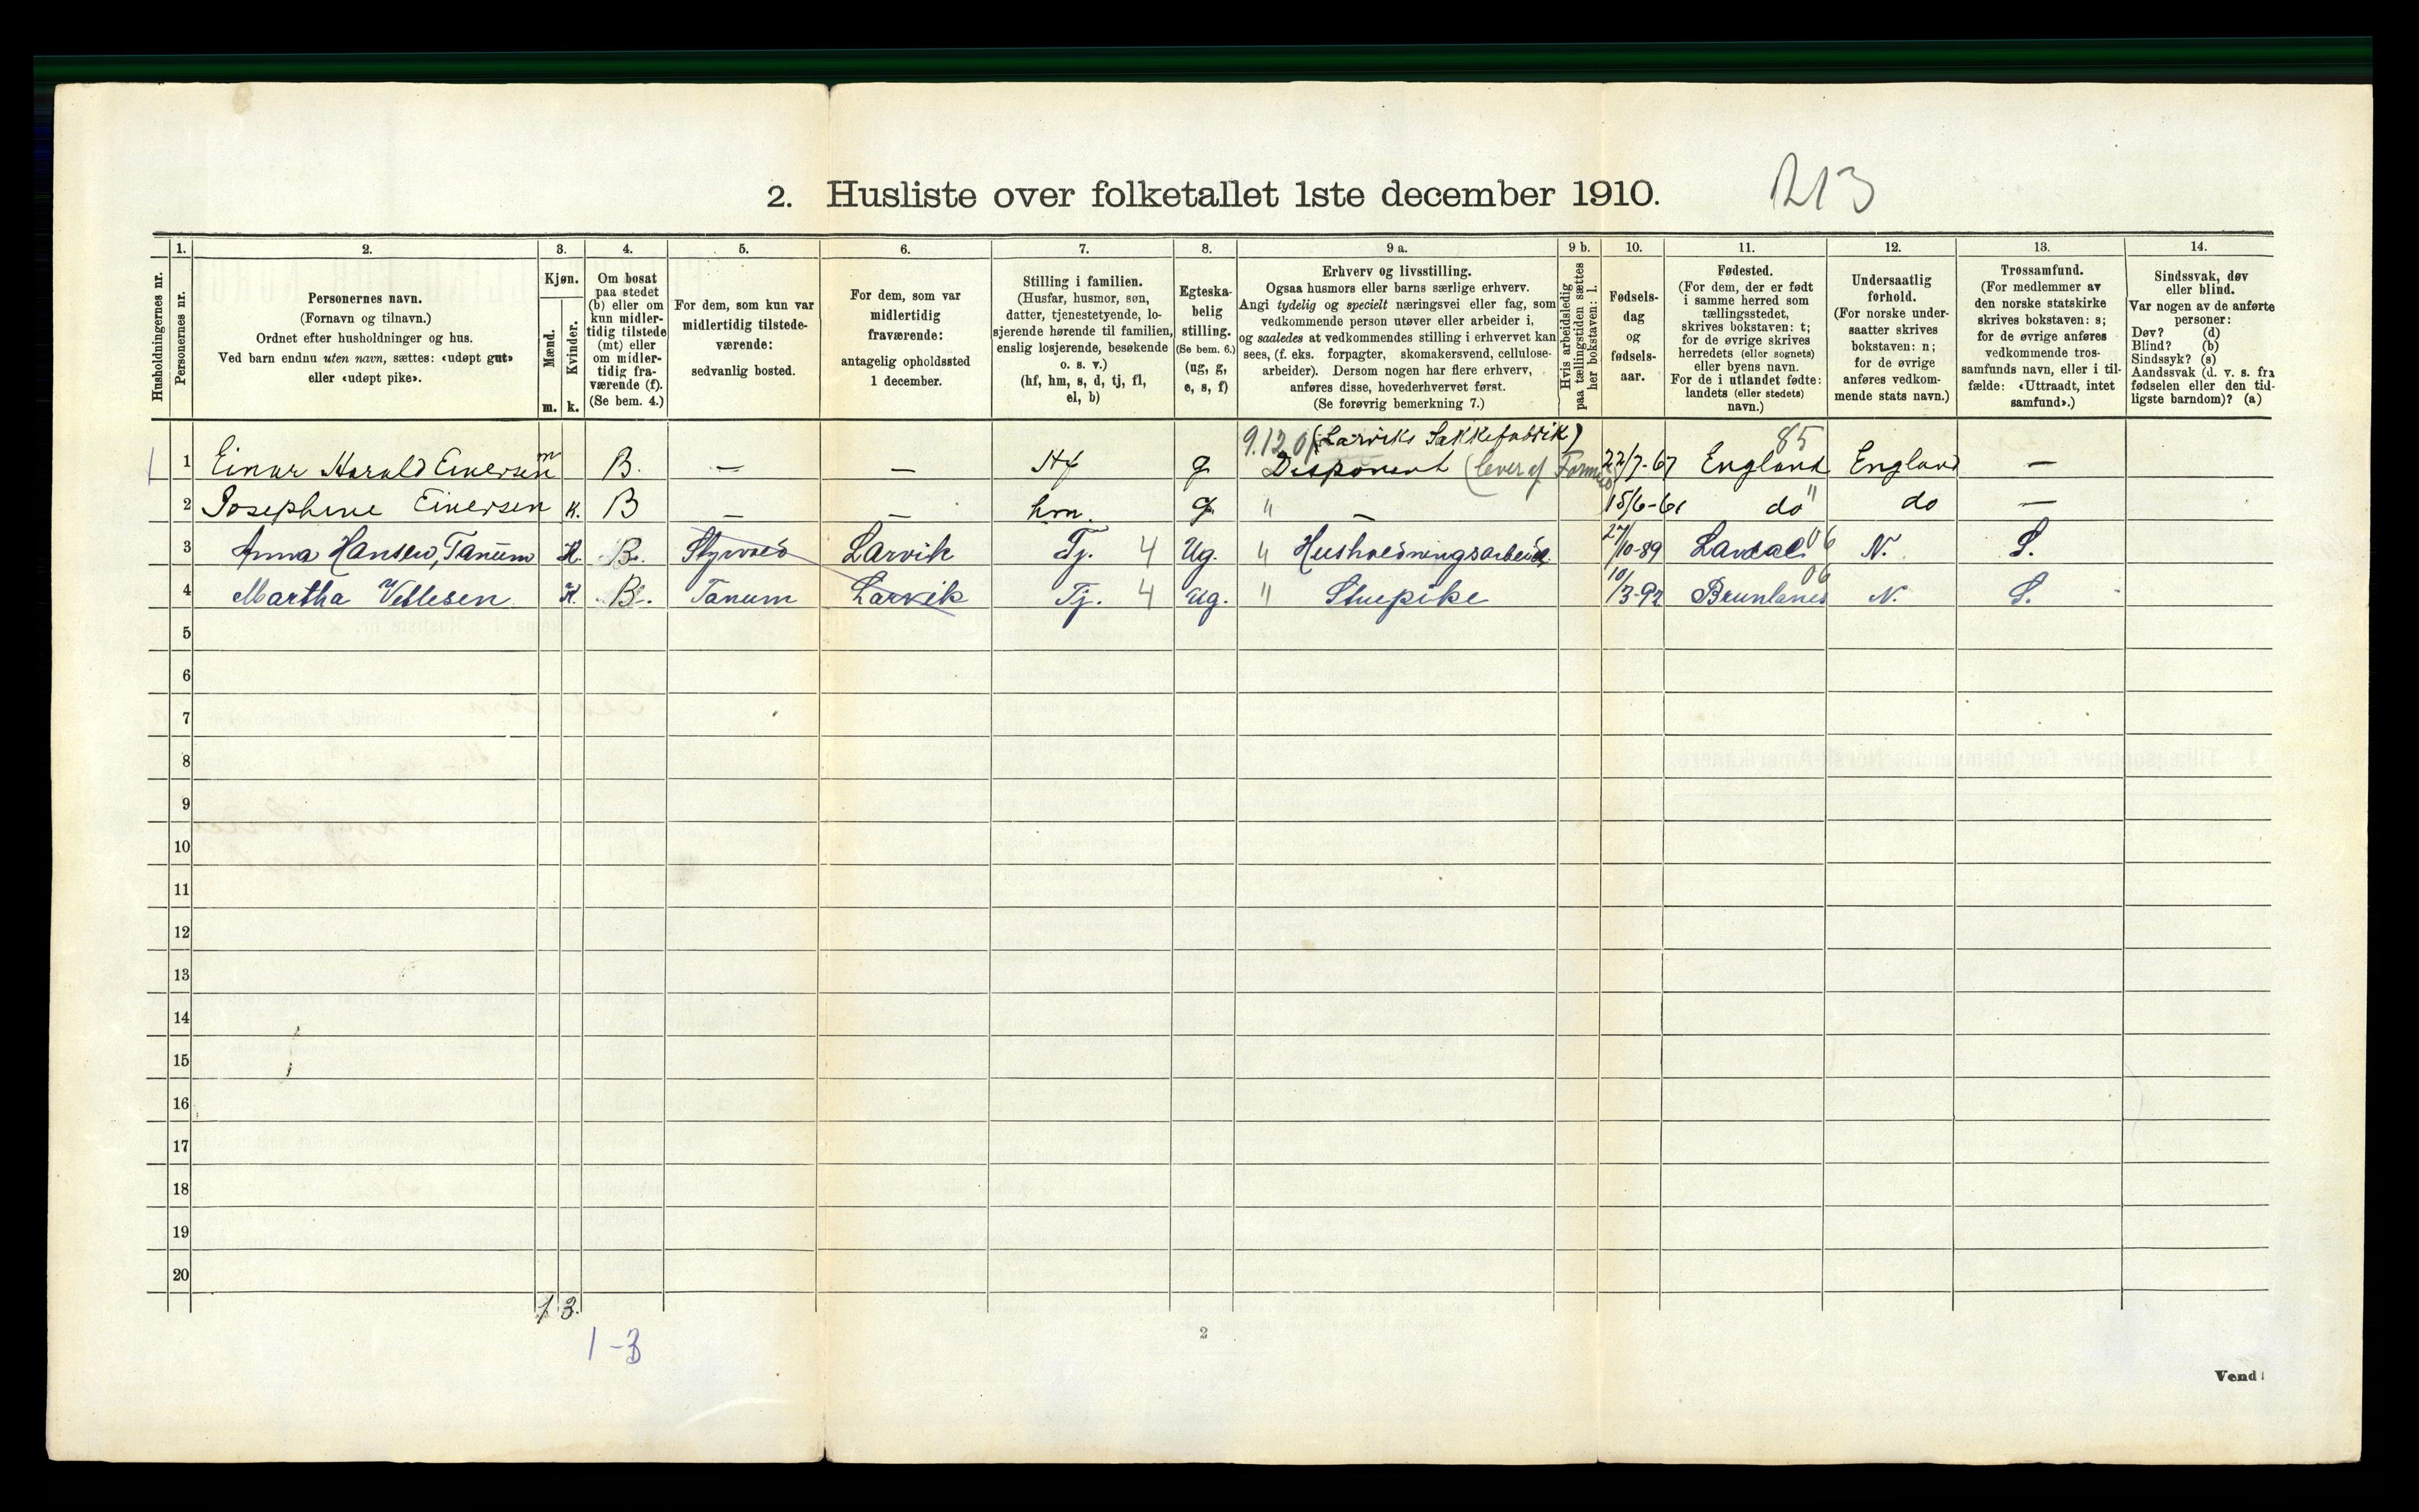 2. Husliste over folketallet 1ste december 1910. 213
Husholdningernes nr.
1.
Personernes nr.
2.
Personernes navn.
(Fornavn og tilnavn.)
Ordnet efter husholdninger og hus.
Ved barn endnu uten navn, sættes: «udøpt gut»
eller «udøpt pike».
3.
Kjøn.
Mænd.
Kvinder.
m. k.
4.
Om bosat
paa stedet
(b) eller om
kun midler-
tidig tilstede
(mt) eller
om midler-
tidig fra-
værende (f).
(Se bem. 4.)
5.
For dem, som kun var
midlertidig tilstede-
værende:
sedvanlig bosted.
6.
For dem, som var
midlertidig
fraværende:
antagelig opholdssted
1 december.
7.
Stilling i familien.
(Husfar, husmor, søn,
datter, tjenestetyende, lo-
sjerende hørende til familien,
enslig losjerende, besøkende
o. s. v.)
(hf, hm, s, d, tj, fl,
el, b)
8.
Egteska-
belig
stilling.
(Se bem. 6.)
(ug, g,
e, s, f)
9 a.
Erhverv og livsstilling.
Ogsaa husmors eller barns særlige erhverv.
Angi tydelig og specielt næringsvei eller fag, som
vedkommende person utøver eller arbeider i,
og saaledes at vedkommendes stilling i erhvervet kan
sees, (f. eks. forpagter, skomakersvend, cellulose-
arbeider). Dersom nogen har flere erhverv,
anføres disse, hovederhvervet først.
(Se forøvrig bemerkning 7.)
9 b.
Hvis arbeidsledig
paa tællingstiden sættes
her bokstaven: l.
10.
Fødsels-
dag
og
fødsels-
aar.
11.
Fødested.
(For dem, der er født
i samme herred som
tællingsstedet,
skrives bokstaven: t;
for de øvrige skrives
herredets (eller sognets)
eller byens navn.
For de i utlandet fødte:
landets (eller stedets)
navn.)
12.
Undersaatlig
forhold.
(For norske under-
saatter skrives
bokstaven: n;
for de øvrige
anføres vedkom-
mende stats navn.)
13.
Trossamfund.
(For medlemmer av
den norske statskirke
skrives bokstaven: s;
for de øvrige anføres
vedkommende tros-
samfunds navn, eller i til-
fælde: «Uttraadt, intet
samfund».)
14.
Sindssvak, døv
eller blind.
Var nogen av de anførte
personer:
Døv? (d)
Blind? (b)
Sindssyk? (s)
Aandssvak (d. v. s. fra
fødselen eller den tid-
ligste barndom)? (a)
9.12.0 (Larviks Sækkefabrik) 85
1 1 Einar Harald Einersen m B. — — Hf g Disponent 22/7-67 England England —
2 Josephine Einersen K. B — — hm g " — 15/6-61 do " do —
3 Anna Hansen, Tanum K. B. Styrvold Larvik Tj. 4 Ug. " Husholdningsarbeide 27/10-89 Lardal 06 N. S.
4 Martha Vettesen K. B. Tanum Larvik Tj. 4 Ug. " Stuepike 10/3-92 Brunlanes 06 N. S.
5
6
7
8
9
10
11
12
13
14
15
16
17
18
19
20
1 3.
1-3
2
Vend!